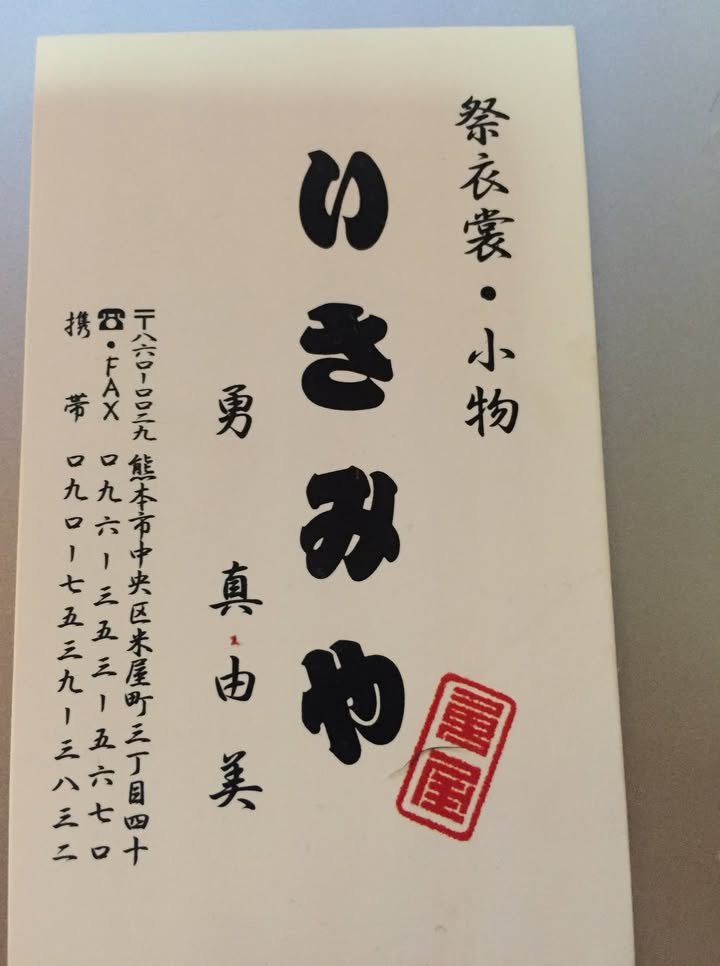 祭衣裳・小物
いさみや
勇 真由美
〒八六〇ー〇〇二九 熊本市中央区米屋町三丁目四十
☎・FAX 〇九六ー三五三ー五六七〇
携帯 〇九〇ー七五三九ー三八三二